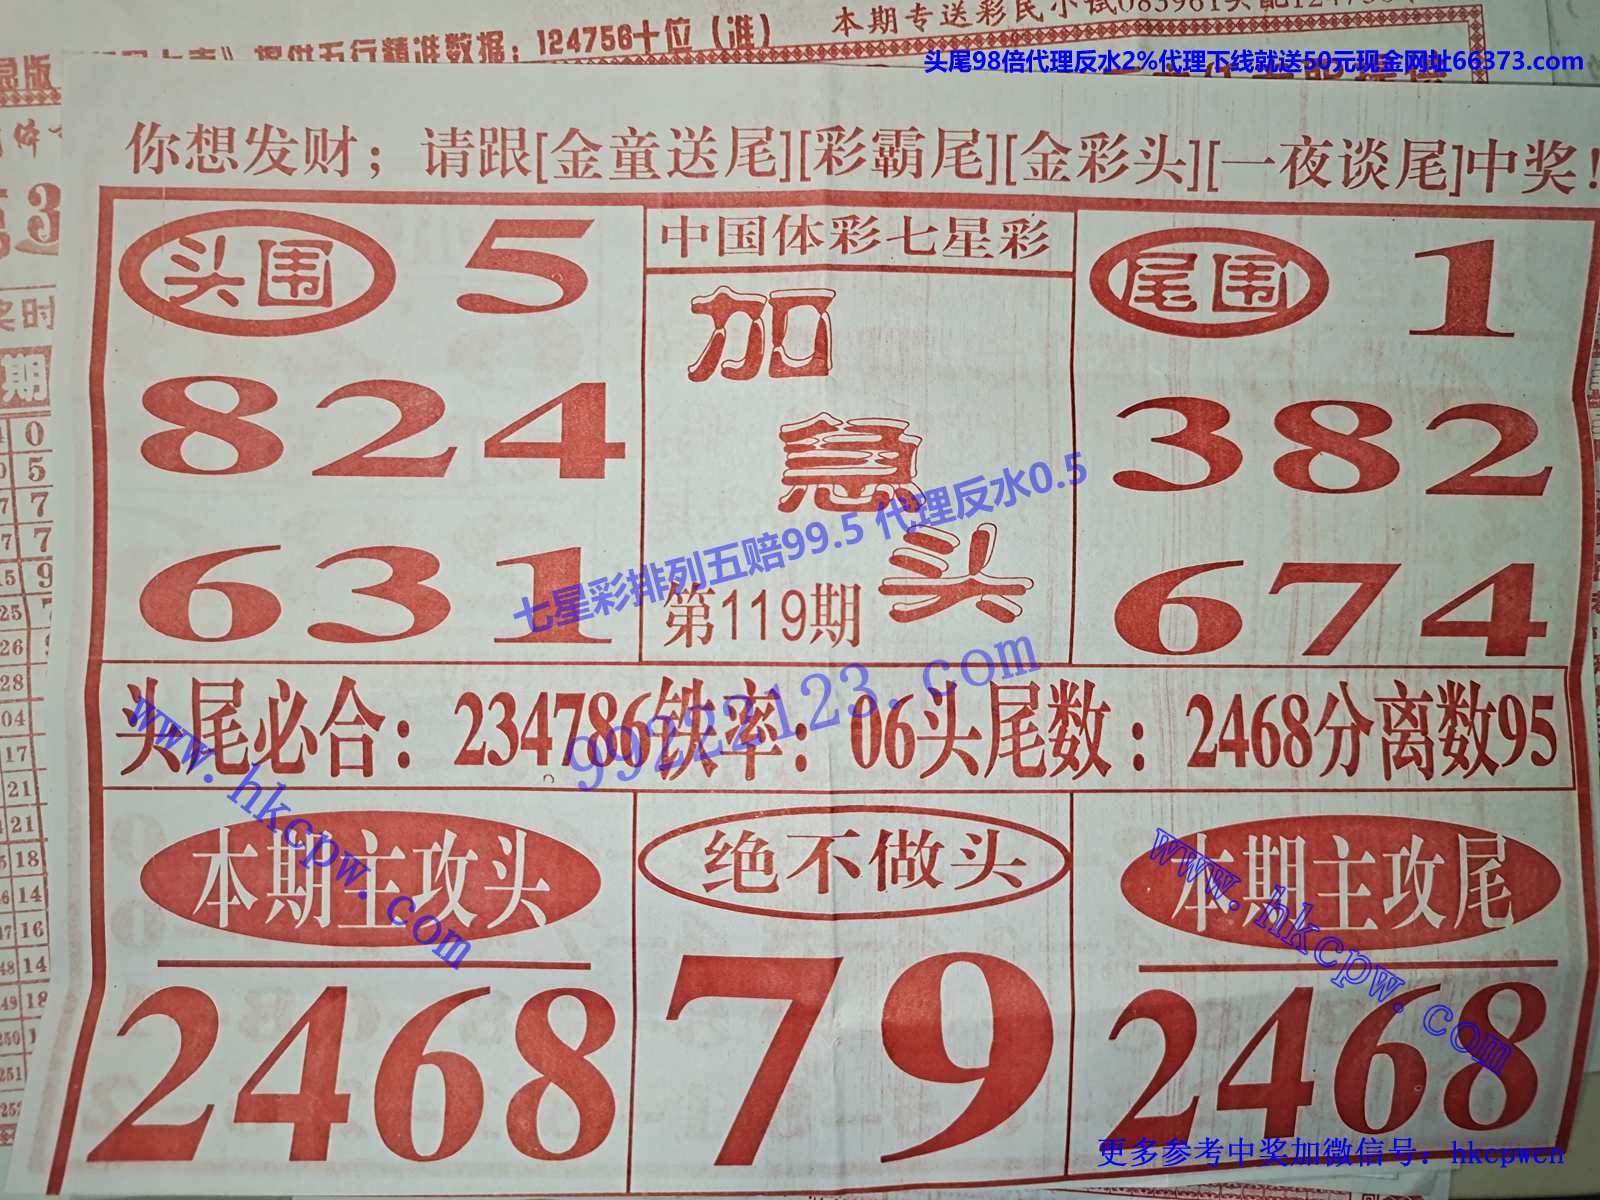 本期专送彩民小试083961头配124756
提供五行精准数据：124756十位（准）
头尾98倍代理反水2%代理下线就送50元现金网址66373.com
你想发财；请跟[金童送尾][彩霸尾][金彩头][一夜谈尾]中奖！
头围 5
824
631
中国体彩七星彩
加急头
第119期
尾围 1
382
674
七星彩排列五赔99.5 代理反水0.5
99222123.com
头尾必合：234786铁率：06头尾数：2468分离数95
www.hkcpw.com
本期主攻头
2468
绝不做头
79
本期主攻尾
2468
www.hkcpw.com
更多参考中奖加微信号：hkcpwcn